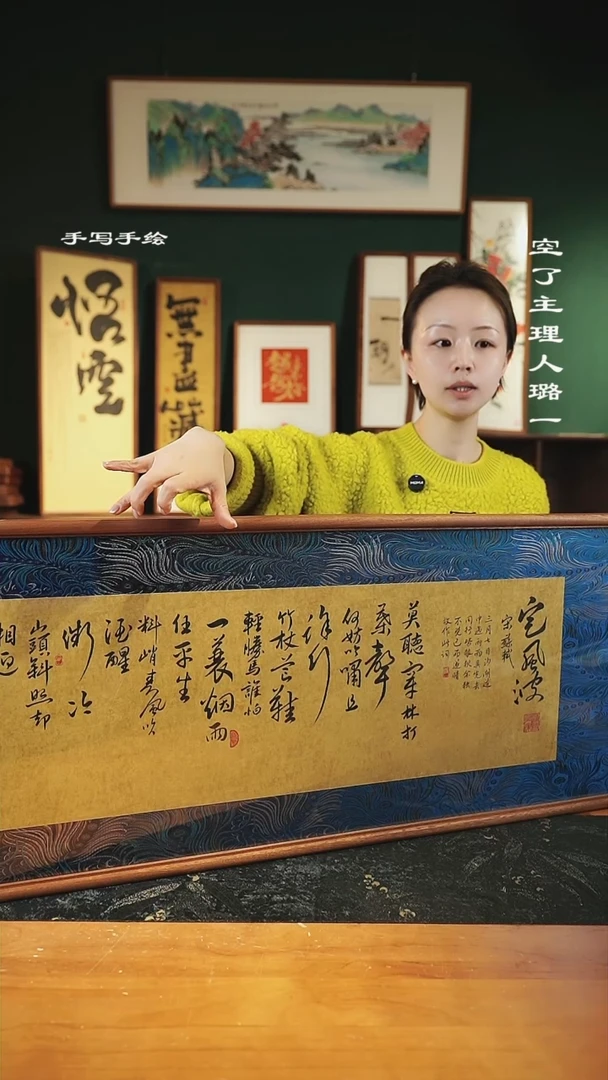 手写手绘
空了主理人璐一
悟空
無盡藏
定風波
宋 蘇軾
三月七日沙湖道
中遇雨雨具先去
同行皆狼狽余獨
不覺已而遂晴
故作此词
莫聽穿林打
葉聲
何妨吟嘯且
徐行
竹杖芒鞋
輕勝馬誰怕
一蓑烟雨
任平生
料峭春風吹
酒醒
微冷
山頭斜照却
相迎